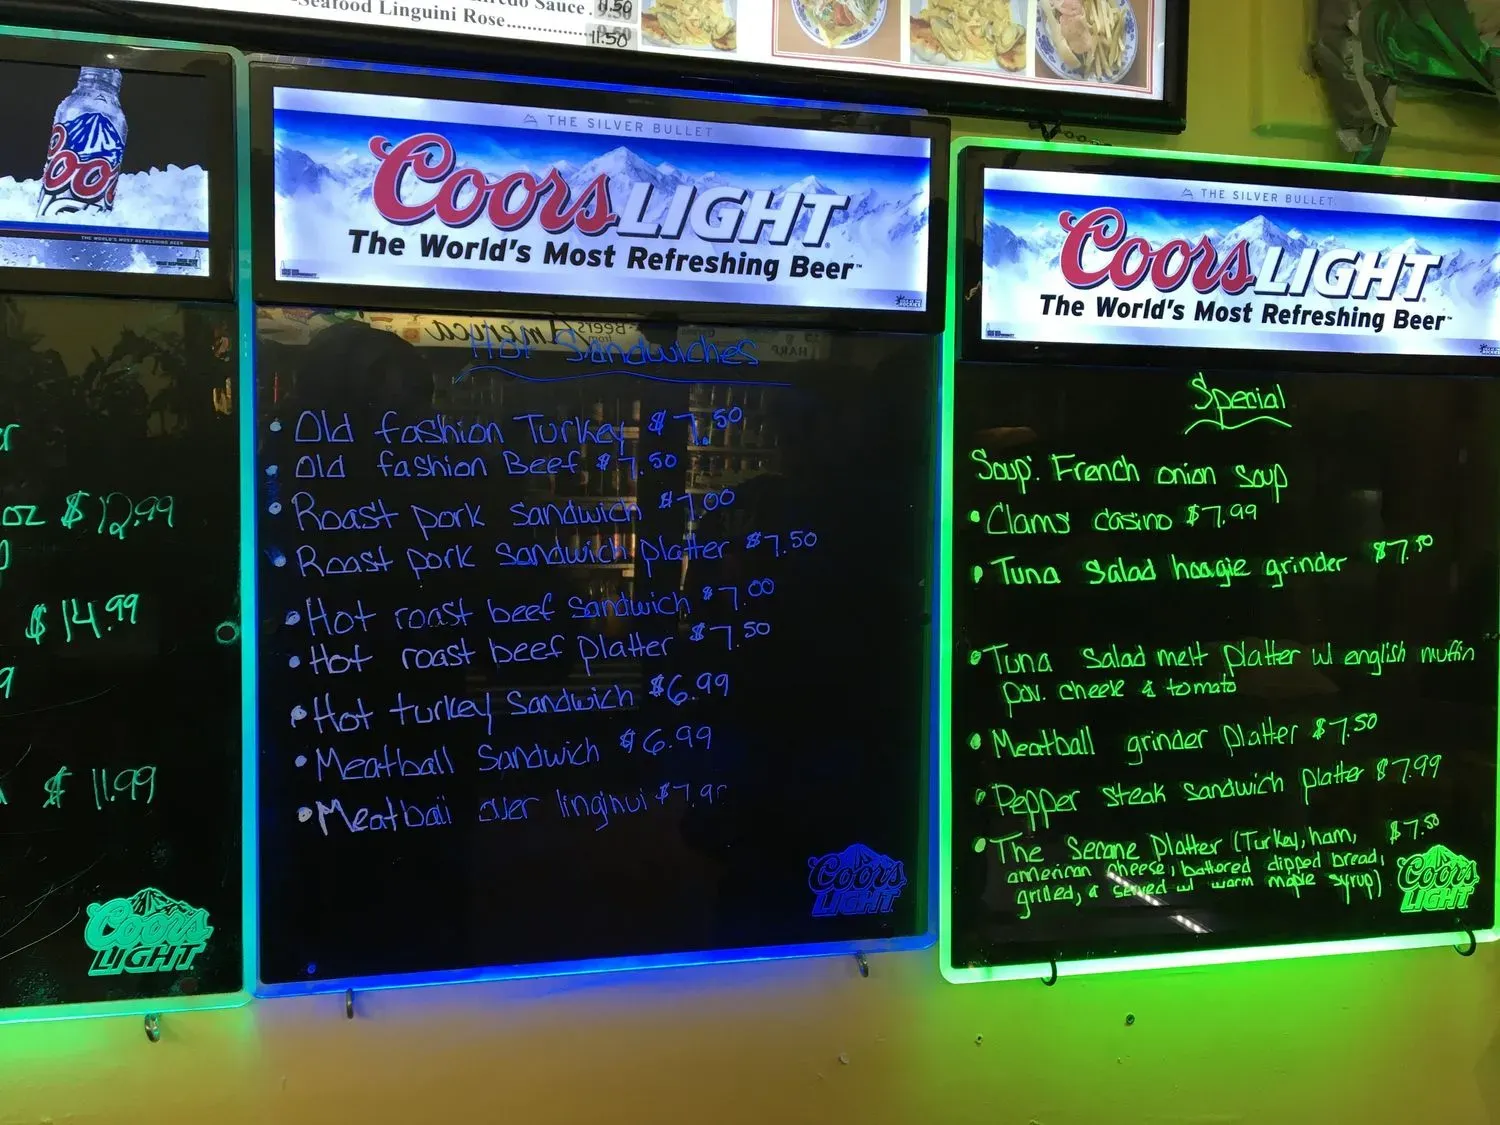 Sauce . 11.50
Seafood Linguini Rose
11.50
Coors
THE WORLD'S MOST REFRESHING BEER
oz $12.99
$14.99
9
$11.99
Coors
LIGHT
THE SILVER BULLET
Coors LIGHT
The World's Most Refreshing Beer™
Hot Sandwiches
• Old fashion Turkey $7.50
• Old fashion Beef $7.50
• Roast pork sandwich $7.00
• Roast pork sandwich platter $7.50
• Hot roast beef sandwich $7.00
• Hot roast beef platter $7.50
• Hot turkey sandwich $6.99
• Meatball sandwich $6.99
• Meatball over linginui
Coors
LIGHT
THE SILVER BULLET
Coors LIGHT
The World's Most Refreshing Beer™
Special
Soup: French onion soup
• Clams casino $7.99
• Tuna salad hoagie grinder $7.50
• Tuna salad melt platter w/ english muffin
pov. cheese & tomato
• Meatball grinder platter $7.50
• Pepper steak sandwich platter $7.99
• The Secane Platter (Turkey, ham, $7.50
american cheese, battered dipped bread,
grilled, & served w/ warm maple syrup)
Coors
LIGHT